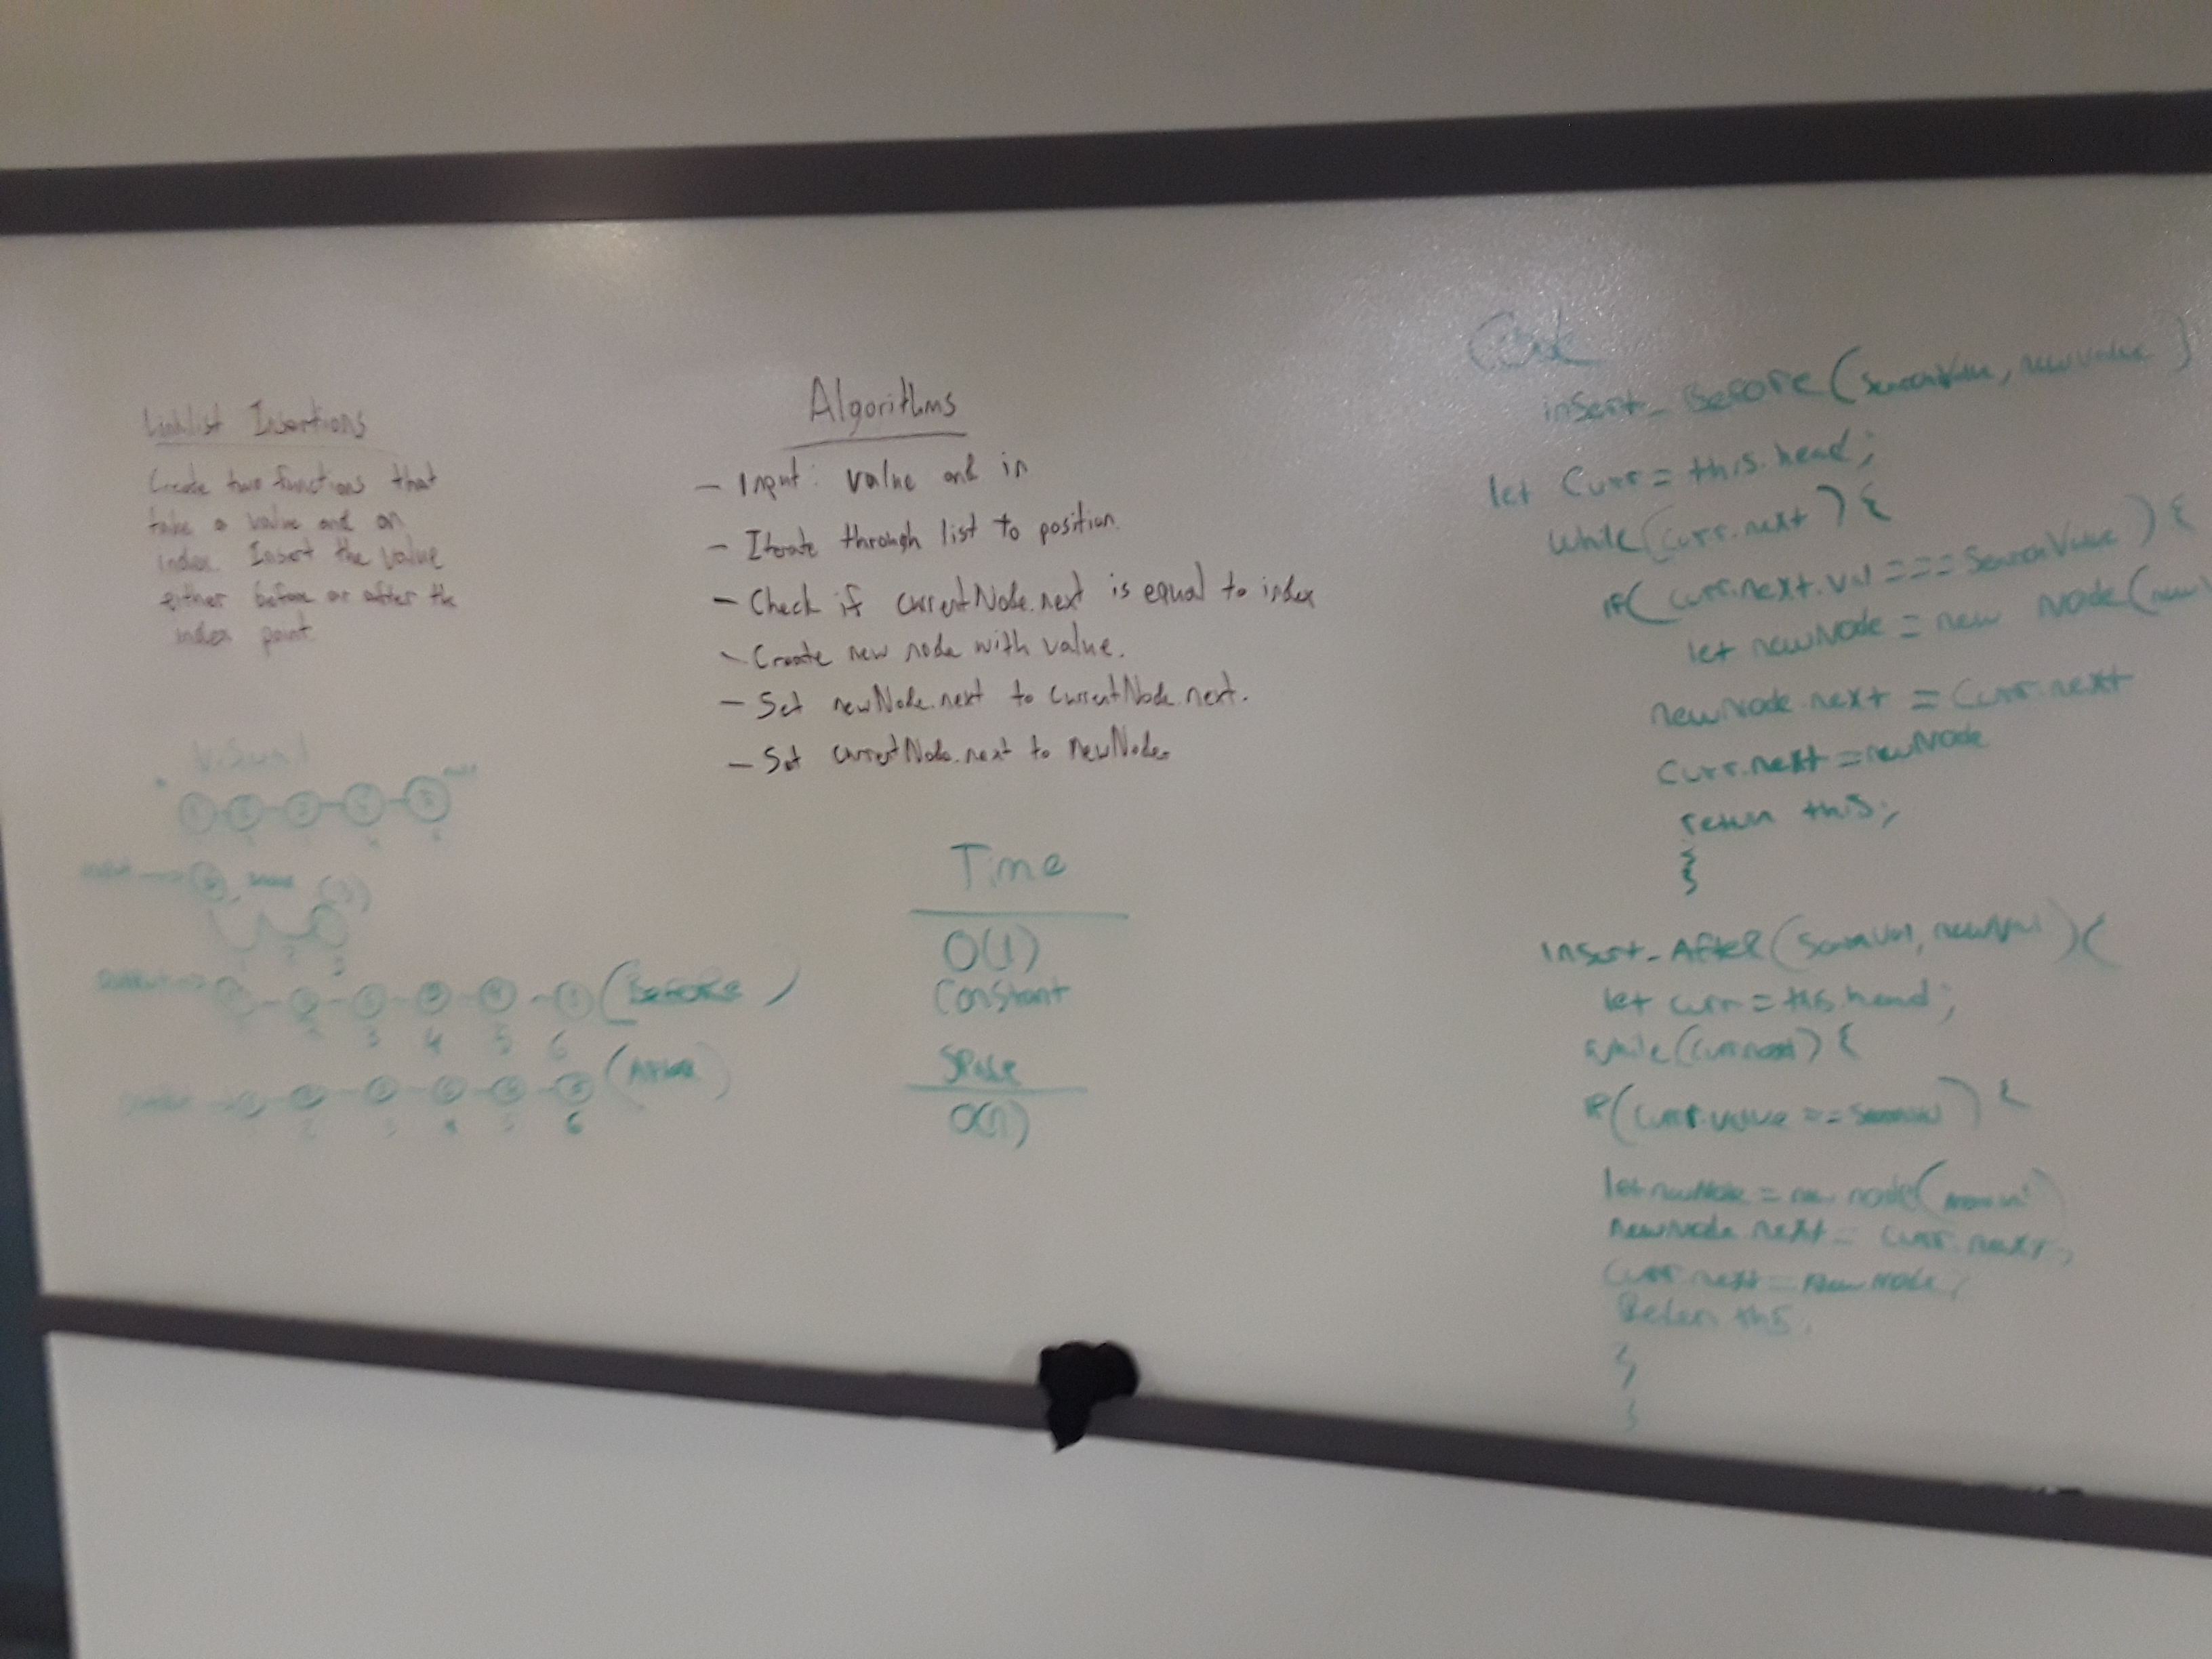 Linklist Insertions
Create two functions that
take a value and an
index. Insert the value
either before or after the
index point.
Visual
(Before)
2 3 4 5 6
(After)
6
Algorithms
- Input: value and in
- Iterate through list to position.
- Check if currentNode.next is equal to index
- Create new node with value.
- Set newNode.next to currentNode.next.
- Set currentNode.next to newNode.
Time
O(1)
Constant
Space
O(n)
Code
insert_Before(SearchValue, newValue)
let Curr = this.head;
while(curr.next) {
if(curr.next.val === SearchValue) {
let newNode = new Node(new
newNode.next = Curr.next
Curr.next = newNode
return this;
}
}
Insert_After(
let curr = this.head;
while(
if(curr.value ==
let newNode = new node(
newNode.next = curr.next;
curr.next = newNode;
Return this.
}
}